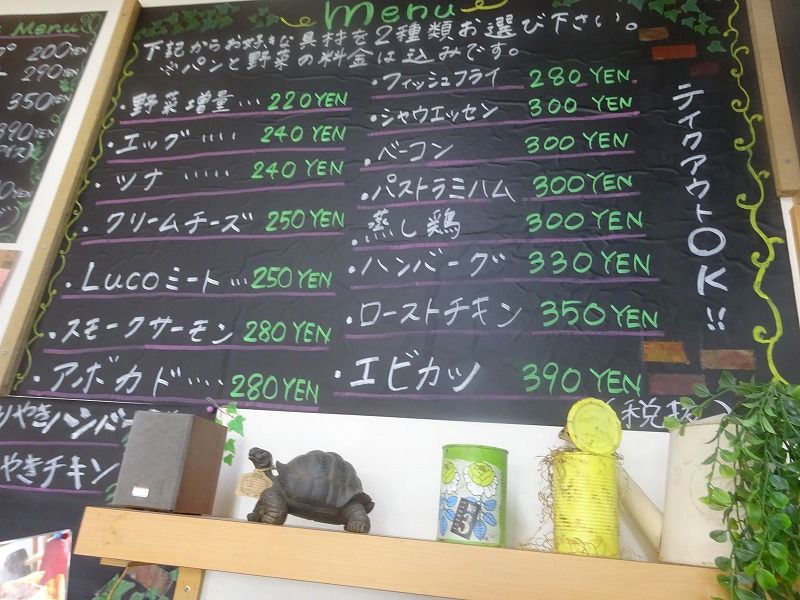 Menu
200YEN
290YEN
350YEN
menu
下記からお好きな具材を2種類お選び下さい。
※パンと野菜の料金は込みです。
・野菜増量…220YEN
・エッグ‥‥240YEN
・ツナ‥‥240YEN
・クリームチーズ 250YEN
・Lucoミート…250YEN
・スモークサーモン 280YEN
・アボカド‥‥280YEN
・フィッシュフライ 280YEN
・シャウエッセン 300YEN
・ベーコン 300YEN
・パストラミハム 300YEN
・蒸し鶏 300YEN
・ハンバーグ 330YEN
・ローストチキン 350YEN
・エビカツ 390YEN
(税抜)
テイクアウトOK!!
りやきハンバー
やきチキン